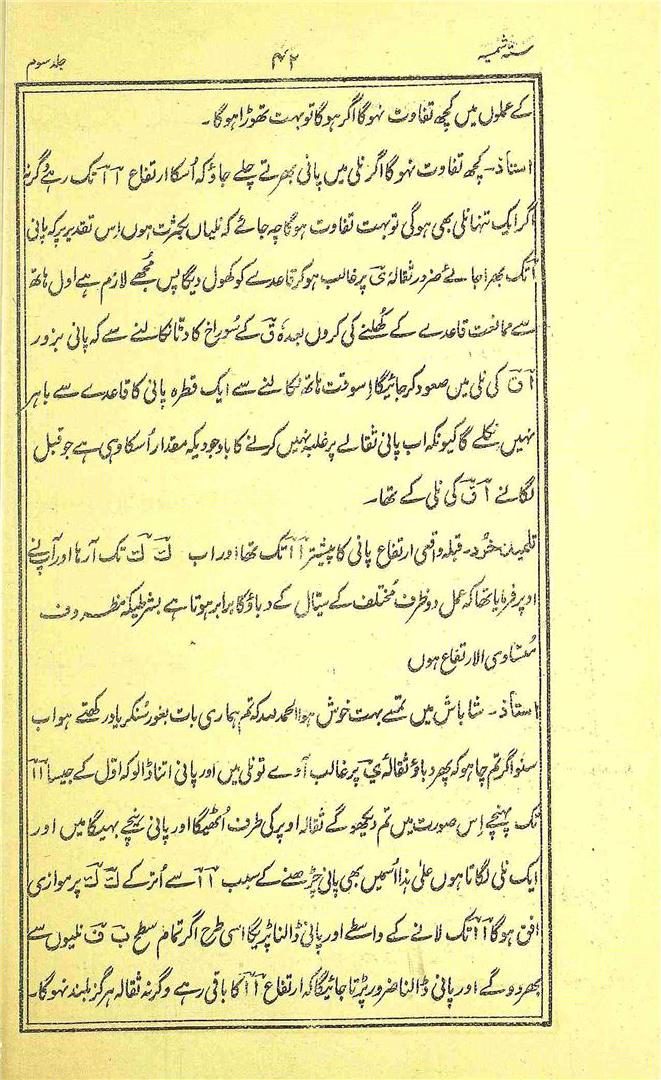 ستہ شمسیہ ۴۲ جلد سوم
کے عملوں میں کچھ تفاوت نہوگا اگر ہوگا تو بہت تھوڑا ہوگا۔
استاذ۔ کچھ تفاوت نہوگا اگر نلی میں پانی بھرتے چلے جاؤ کہ اُسکا ارتفاع آ آ تک رہے وگرنہ
اگر ایک تنہا نلی بھی ہوگی تو بہت تفاوت ہوگا چہ جائے کہ نلیاں بکثرت ہوں اِس تقدیر پر کہ پانی
آ تک بھرا جائے ضرور ثقالہ یَ پر غالب ہوکر قاعدے کو کھول دیگا پس مُجھے لازم ہے اول ہاتھ
سے ممانعت قاعدے کے کُھلنے کی کروں بعدہٗ قَ کے سُوراخ کا دٹا نکالنے سے کہ پانی بزور
آ قَ کی نلی میں صعود کر جائیگا اِسوقت ہاتھ نکالنے سے ایک قطرہ پانی کا قاعدے سے باہر
نہیں نکلے گا کیونکہ اب پانی ثقالے پر غلبہ نہیں کرنے کا باوجودیکہ مقدار اُسکا وہی ہے جو قبل
لگانے آ قَ کی نلی کے تھا۔
تلمیذ خرد۔ قبلہ واقعی ارتفاع پانی کا پیشتر آ آ تک تھا اور اب تَ تَ تک آرہا اور آپنے
اوپر فرمایا تھا کہ عمل دو ظرف مُختلف کے سیّال کے دباؤ کا برابر ہوتا ہے بشرطیکہ مظروف
مُتساوی الارتفاع ہوں
استاذ۔ شاباش میں تمسے بہت خوش ہوا الحمد للہ کہ تم ہماری بات بغور سُنکر یاد رکھتے ہو اب
سنو اگر تم چاہو کہ پھر دباؤ ثقالۂ یَ پر غالب آوے تو نلی میں اور پانی اتنا ڈالو کہ اوّل کے جیسا آ آ
تک پہنچے اِس صورت میں تم دیکھو گے ثقالہ اوپر کی طرف اُٹھیگا اور پانی نیچے بہیگا میں اور
ایک نلی لگاتا ہوں علیٰ ہذا اُسمیں بھی پانی چڑھنے کے سبب آ آ سے اُتر کے تَ تَ پر موازی
افق ہوگا آ آ تک لانے کے واسطے اور پانی ڈالنا پڑیگا اسی طرح اگر تمام سطح بَ قَ نلیوں سے
بھر دو گے اور پانی ڈالنا ضرور پڑتا جائیگا کہ ارتفاع آ آ کا باقی رہے وگرنہ ثقالہ ہرگز بلند نہوگا۔